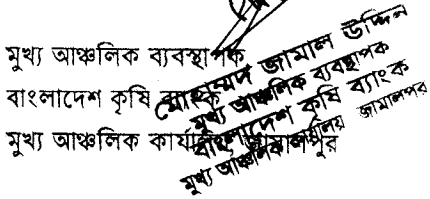 মুখ্য আঞ্চলিক ব্যবস্থাপক
বাংলাদেশ কৃষি ব্যাংক
মুখ্য আঞ্চলিক কার্যালয়, জামালপুর
মোহাম্মদ জামাল উদ্দিন
মুখ্য আঞ্চলিক ব্যবস্থাপক
বাংলাদেশ কৃষি ব্যাংক
মুখ্য আঞ্চলিক কার্যালয় জামালপুর